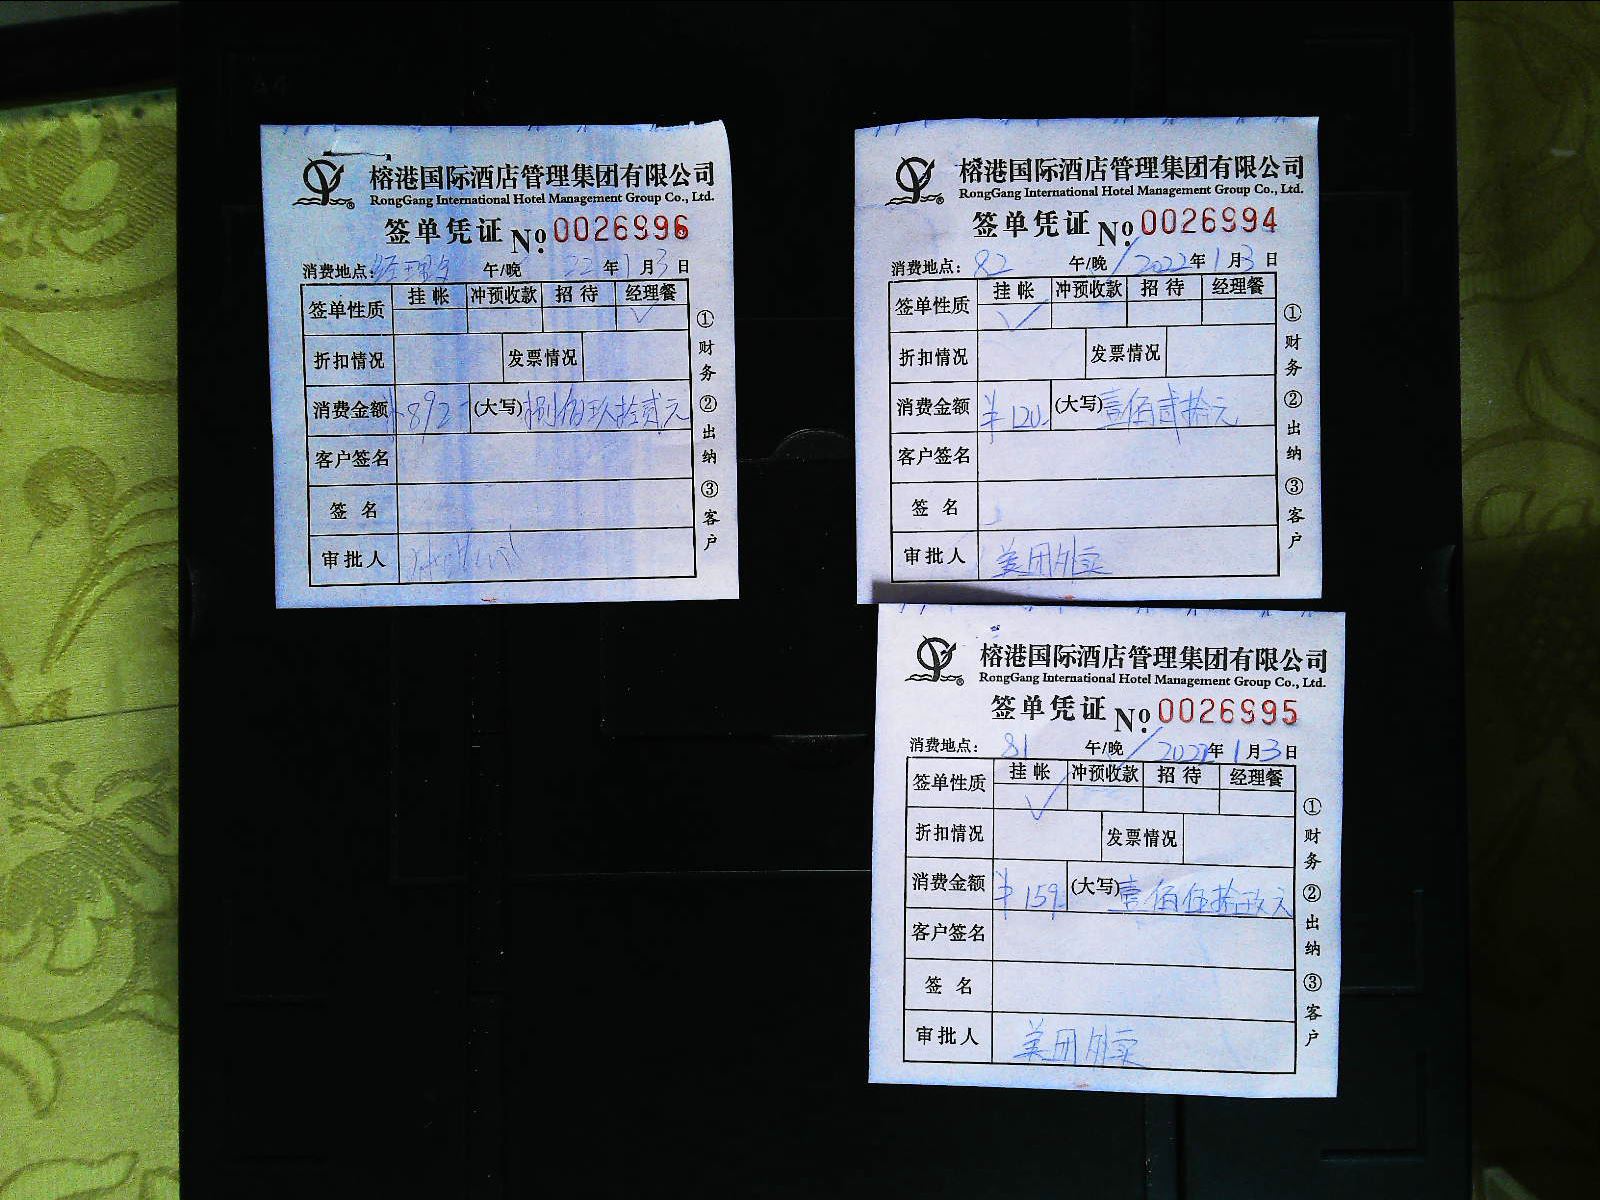 榕港国际酒店管理集团有限公司
RongGang International Hotel Management Group Co., Ltd.
签单凭证 No. 0026996
消费地点: 经理 午/晚 22年1月3日
签单性质 挂帐 冲预收款 招待 经理餐
✓
折扣情况 发票情况
消费金额 ¥892- (大写)捌佰玖拾贰元
客户签名
签名
审批人
①财务 ②出纳 ③客户
榕港国际酒店管理集团有限公司
RongGang International Hotel Management Group Co., Ltd.
签单凭证 No. 0026994
消费地点: 82 午/晚 2022年1月3日
签单性质 挂帐 冲预收款 招待 经理餐
✓
折扣情况 发票情况
消费金额 ¥120- (大写)壹佰贰拾元
客户签名
签名
审批人 美团外卖
①财务 ②出纳 ③客户
榕港国际酒店管理集团有限公司
RongGang International Hotel Management Group Co., Ltd.
签单凭证 No. 0026995
消费地点: 81 午/晚 2022年1月3日
签单性质 挂帐 冲预收款 招待 经理餐
✓
折扣情况 发票情况
消费金额 ¥159- (大写)壹佰伍拾玖元
客户签名
签名
审批人 美团外卖
①财务 ②出纳 ③客户